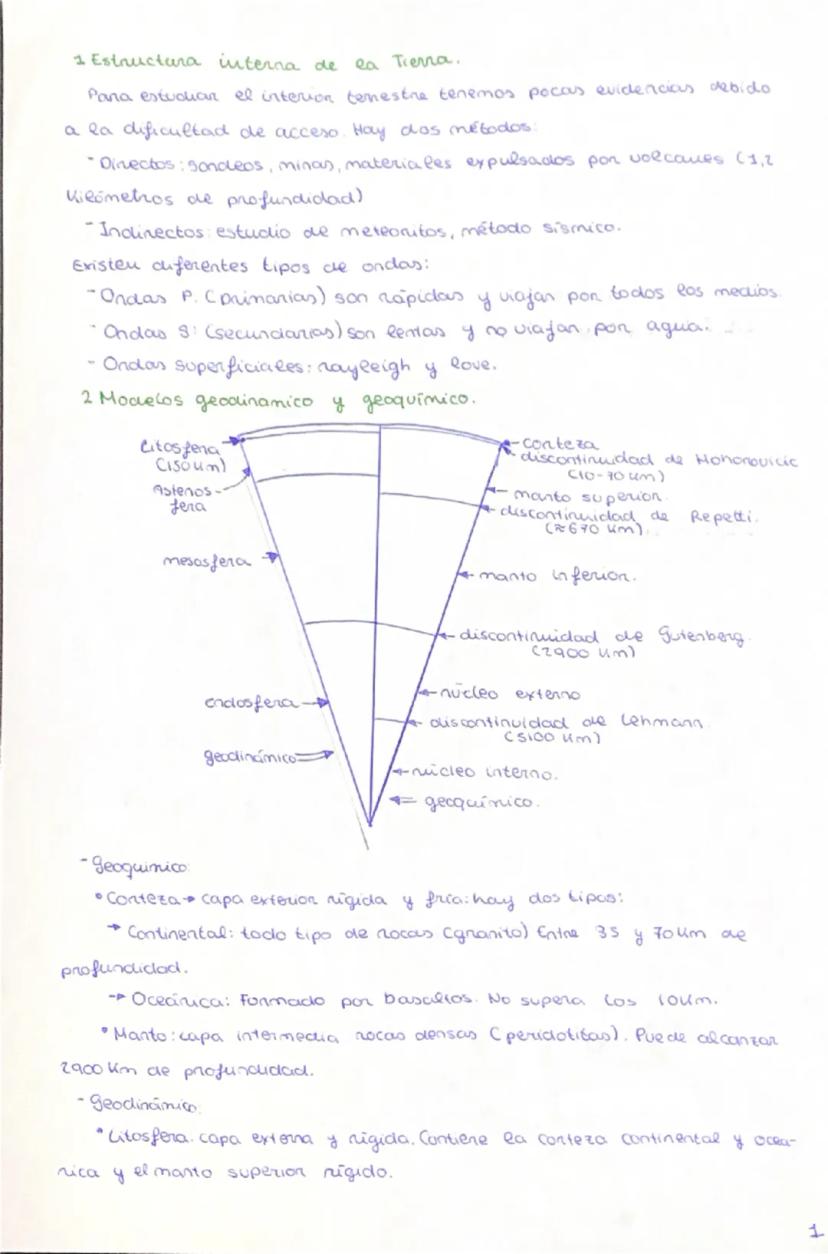 1 Estructura interna de la Tierra.
Para estudiar el interior terrestre tenemos pocas evidencias debido
a la dificultad de acceso. Hay dos métodos:
- Directos: sondeos, minas, materiales expulsados por volcanes (1,2
kilómetros de profundidad)
- Indirectos: estudio de meteoritos, método sísmico.
Existen diferentes tipos de ondas:
- Ondas P: (primarias) son rápidas y viajan por todos los medios.
- Ondas S: (secundarias) son lentas y no viajan por agua.
- Ondas superficiales: rayleigh y love.
2 Modelos geodinamico y geoquímico.
Litosfera
(150 km)
Astenos-
fera
mesosfera
endosfera
geodinámico
corteza
discontinuidad de Mohorovicic
(10-70 km)
manto superior.
discontinuidad de Repetti.
(≈670 km).
manto inferior.
discontinuidad de Gutenberg.
(2900 km)
núcleo externo
discontinuidad de Lehmann.
(5100 km)
núcleo interno.
geoquímico.
- Geoquimico:
• Corteza → capa exterior rígida y fría: hay dos tipos:
→ Continental: todo tipo de rocas (granito) Entre 35 y 70 km de
profundidad.
→ Oceánica: Formado por basaltos. No supera los 10 km.
• Manto: capa intermedia rocas densas (peridotitas). Puede alcanzar
2900 km de profundidad.
- Geodinámico:
• Litosfera. capa externa y rígida. Contiene la corteza continental y oceá-
nica y el manto superior rígido.
1